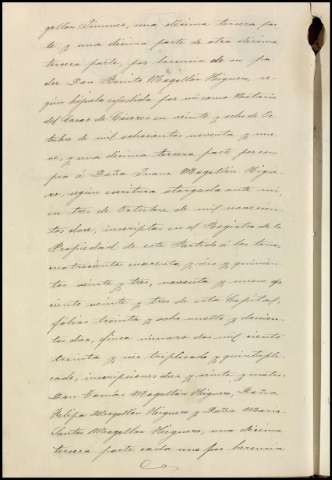 gallon Jimenez, una décima tercera par-
te y una décima parte de otra décima
tercera parte, por herencia de su pa-
dre Don Benito Magallon Higuero, se-
gún hijuela expedida por mi como Notario
del Casar de Cáceres en veinte y ocho de Oc-
tubre de mil ochocientos noventa y nue-
ve, y una décima tercera parte por com-
pra á Doña Juana Magallon Higue-
ro, según escritura otorgada ante mi,
en tres de Octubre de mil novecien-
tos doce, inscriptas en el Registro de la
Propiedad de este Partido á los tomos
trescientos cuarenta y seis y quinien-
tos veinte y tres, noventa y nueve y
ciento veinte y tres de esta Capital,
folios treinta y ocho vuelto y doscien-
tos dos, finca número dos mil ciento
treinta y seis triplicado y quintupli-
cado, inscripciones diez y veinte y nueve.
Don Tomás Magallon Higuero, Doña
Felipa Magallon Higuero y Doña Maria
Santos Magallon Higuero, una décima
tercera parte cada uno por herencia